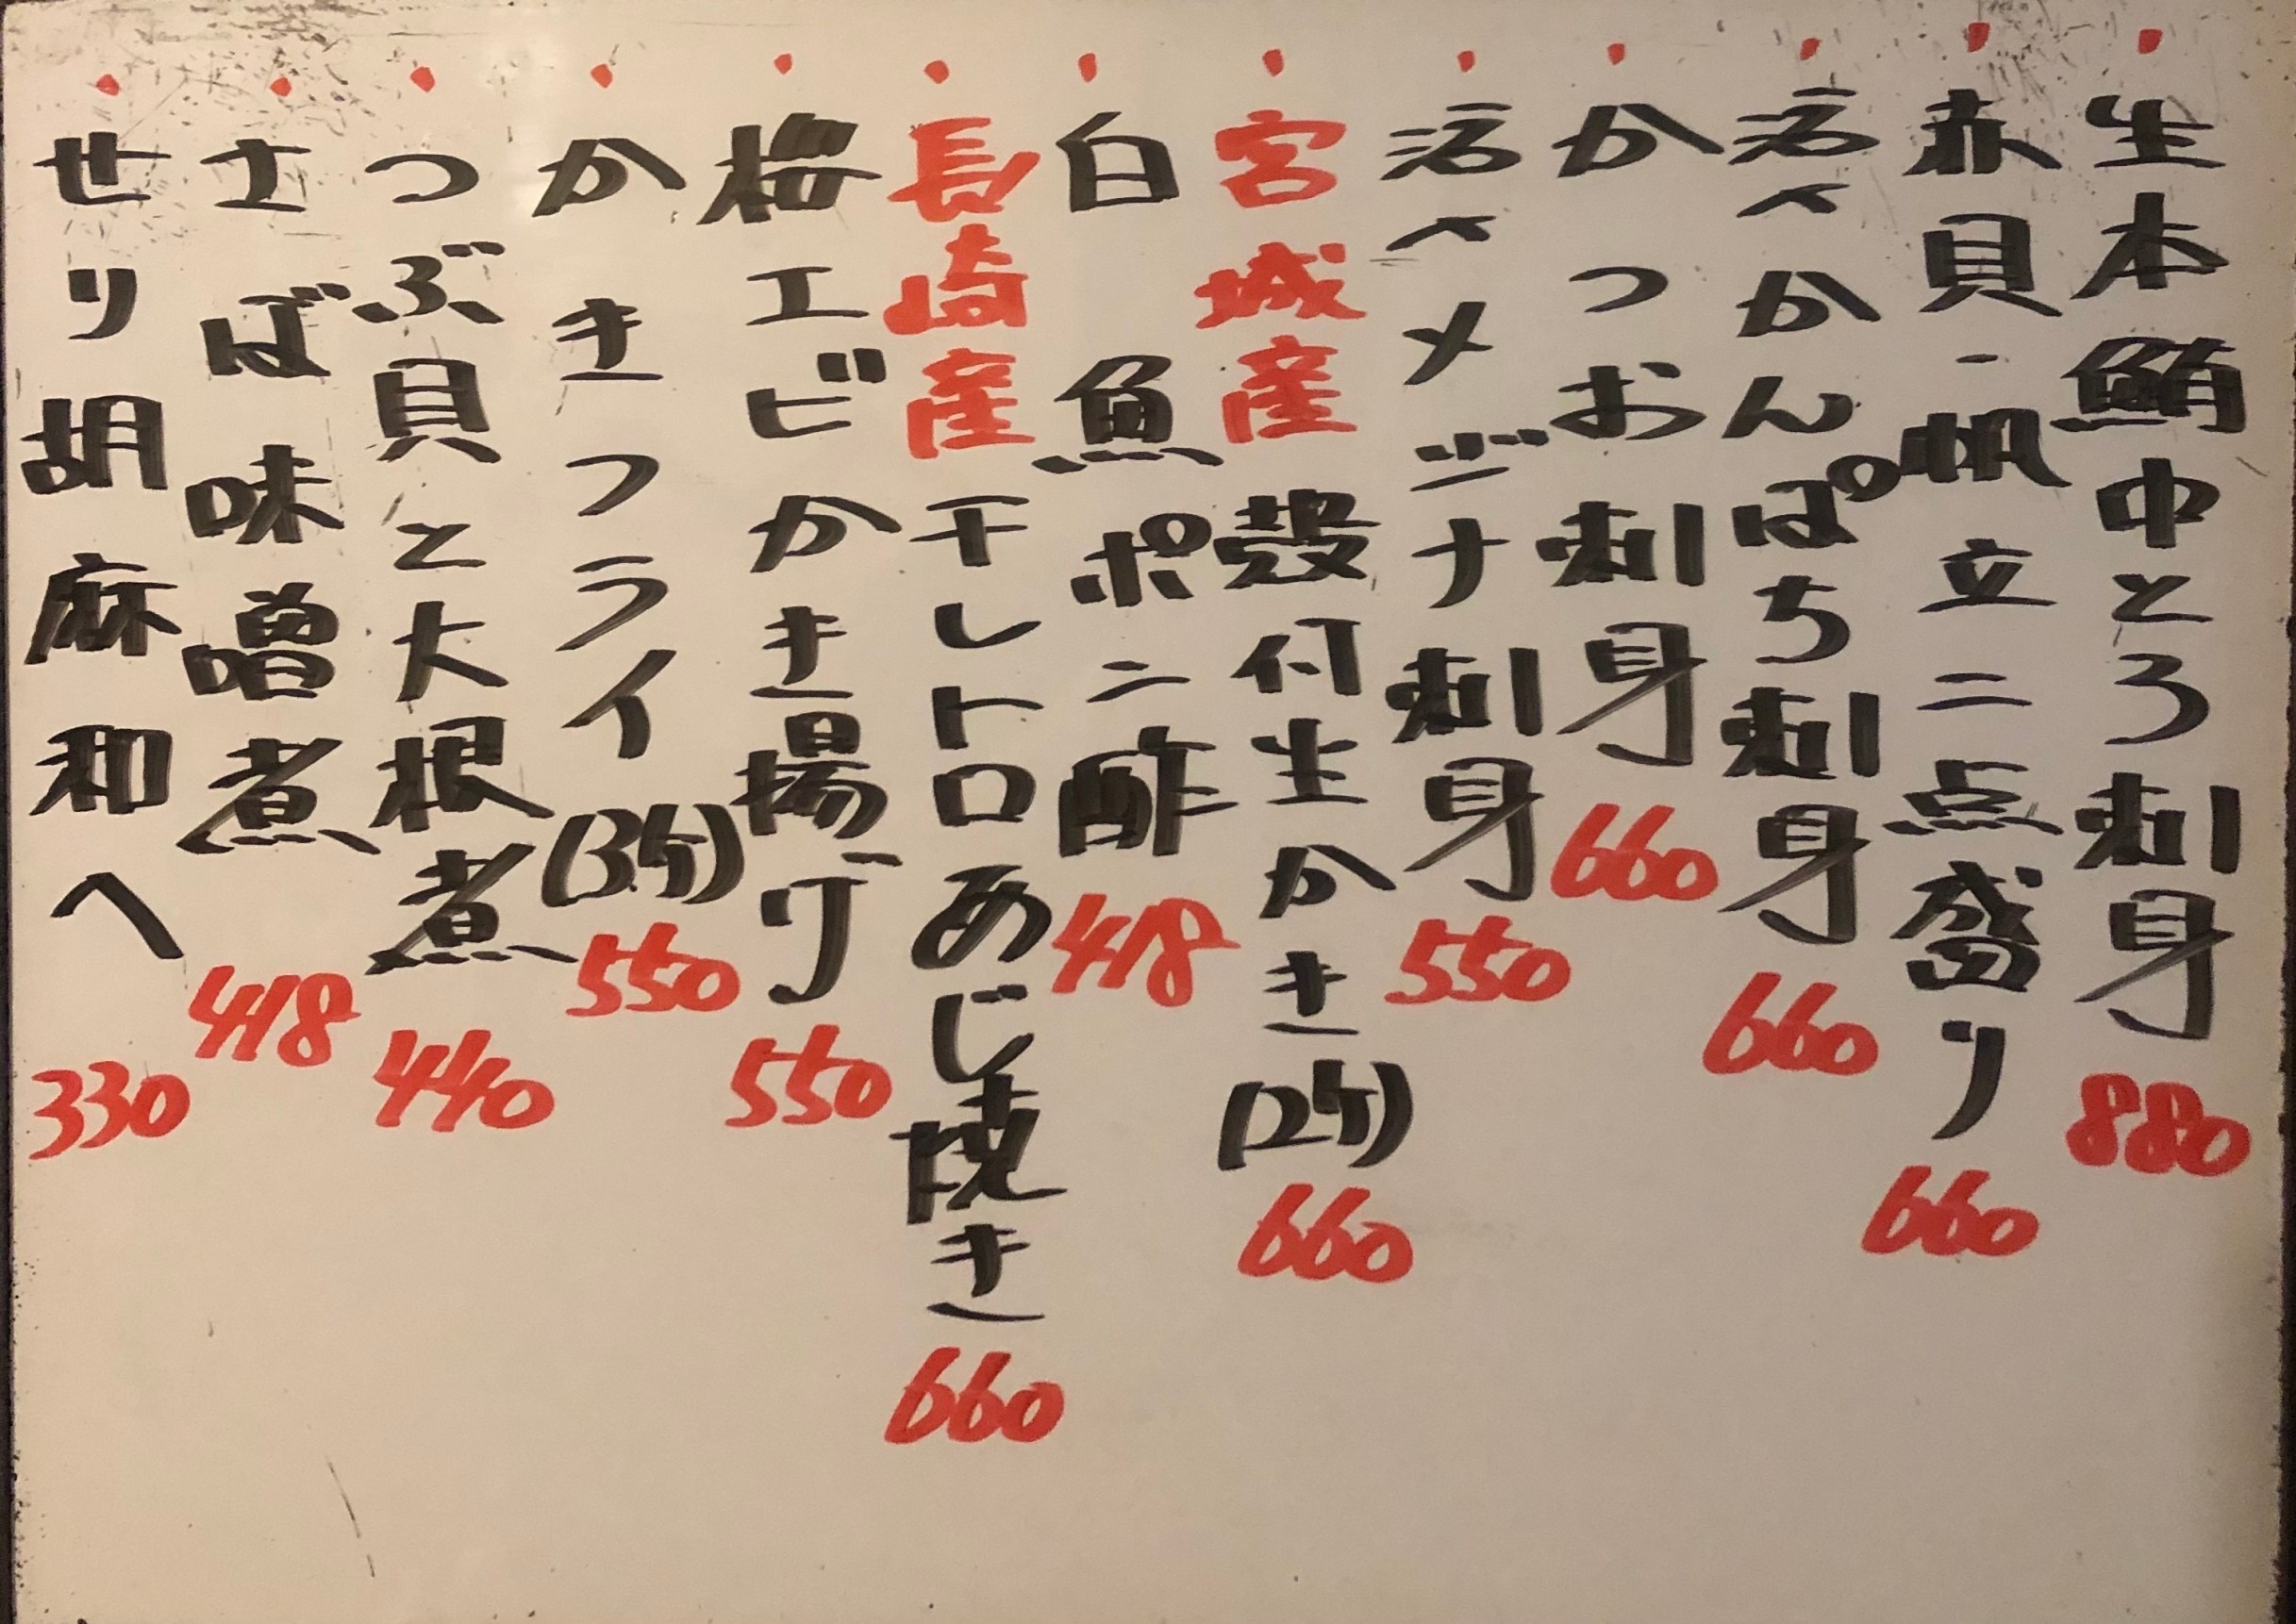 ・生本鮪中とろ刺身 880
・赤貝・帆立二点盛り 660
・活〆かんぱち刺身 660
・かつお刺身 660
・活〆メジナ刺身 550
・宮城産殻付生かき(2ケ) 660
・白魚ポン酢 418
・長崎産干しトロあじ焼き 660
・桜エビかき揚げ 550
・かきフライ(3ケ) 550
・つぶ貝と大根煮 440
・さば味噌煮 418
・せり胡麻和へ 330